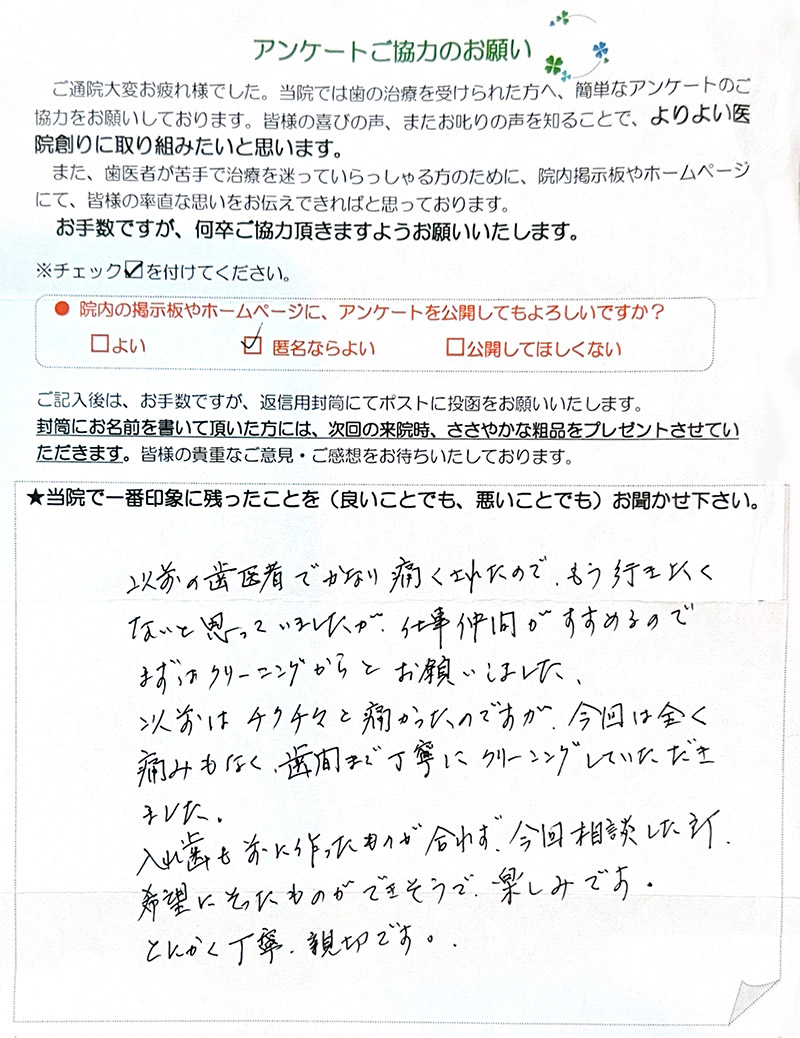 アンケートご協力のお願い
ご通院大変お疲れ様でした。当院では歯の治療を受けられた方へ、簡単なアンケートのご
協力をお願いしております。皆様の喜びの声、またお叱りの声を知ることで、よりよい医
院創りに取り組みたいと思います。
また、歯医者が苦手で治療を迷っていらっしゃる方のために、院内掲示板やホームページ
にて、皆様の率直な思いをお伝えできればと思っております。
お手数ですが、何卒ご協力頂きますようお願いいたします。
※チェック☑を付けてください。
●院内の掲示板やホームページに、アンケートを公開してもよろしいですか？
□よい ☑匿名ならよい □公開してほしくない
ご記入後は、お手数ですが、返信用封筒にてポストに投函をお願いいたします。
封筒にお名前を書いて頂いた方には、次回の来院時、ささやかな粗品をプレゼントさせてい
ただきます。皆様の貴重なご意見・ご感想をお待ちいたしております。
★当院で一番印象に残ったことを（良いことでも、悪いことでも）お聞かせ下さい。
以前の歯医者でかなり痛くされたので、もう行きたく
ないと思っていましたが、仕事仲間がすすめるので
まずはクリーニングからとお願いしました、
以前はチクチクと痛かったのですが、今回は全く
痛みもなく、歯間まで丁寧にクリーニングしていただき
ました。
入れ歯も前に作ったものが合わず、今回相談した所、
希望にそったものができそうで、楽しみです。
とにかく丁寧、親切です。